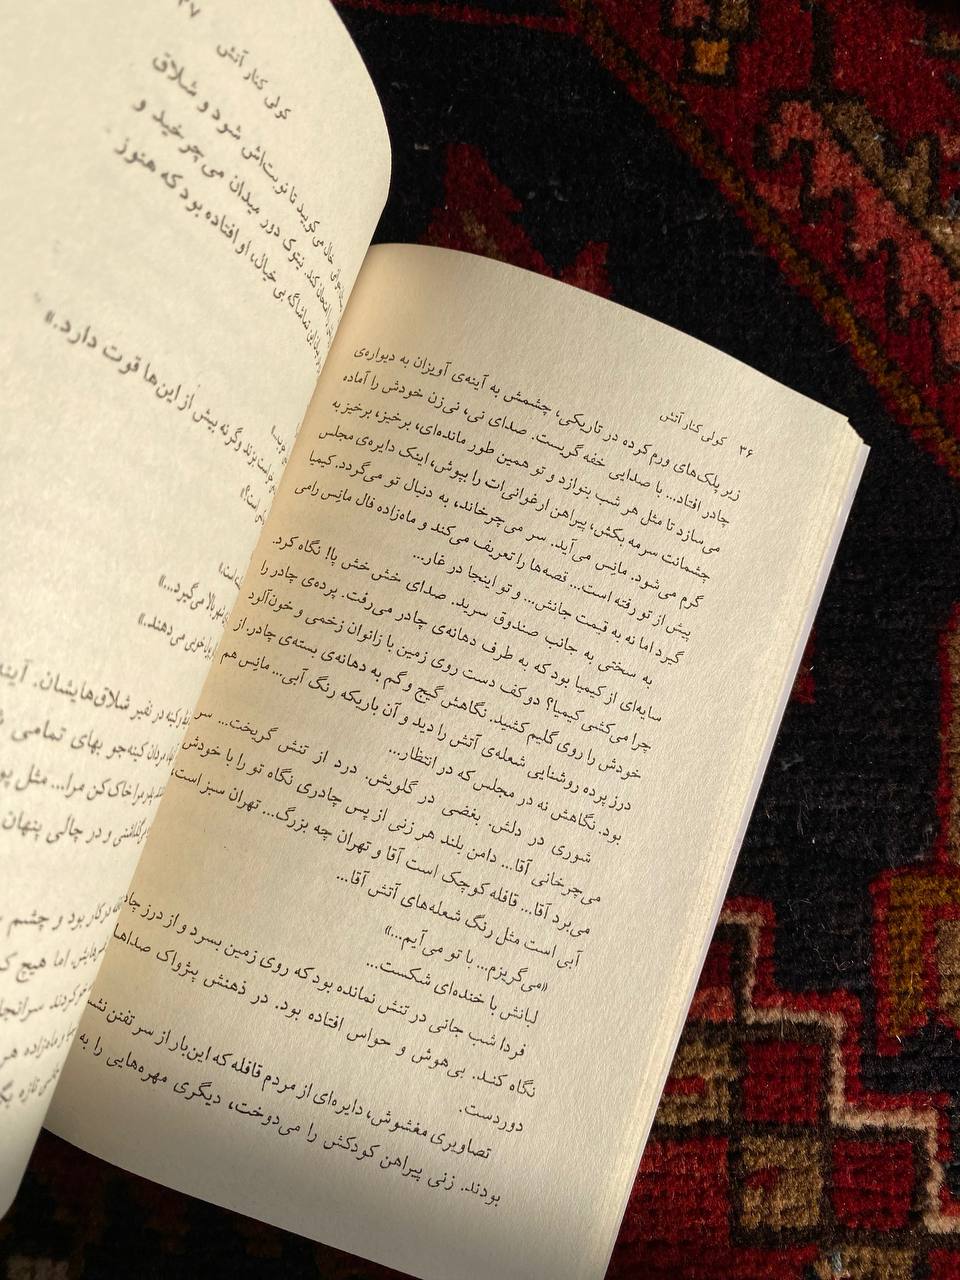 ۳۶ کولی کنار آتش
زیر پلک‌های ورم کرده در تاریکی، چشمش به آینه‌ی آویزان به دیواره‌ی
چادر افتاد... با صدایی خفه گریست. صدای نی، نی‌زن خودش را آماده
می‌سازد تا مثل هر شب بنوازد و تو همین طور مانده‌ای، برخیز، برخیز به
چشمانت سرمه بکش، پیراهن ارغوانی‌ات را بپوش، اینک دایره‌ی مجلس
گرم می‌شود. مانِس می‌آید. سر می‌چرخاند، به دنبال تو می‌گردد. کیمیا
پیش از تو رفته است... قصه‌ها را تعریف می‌کند و ماه‌زاده فال مانِس را می
گیرد اما نه به قیمت جانش... و تو اینجا در غار...
به سختی به جانب صندوق سرید. صدای خش خش پا! نگاه کرد.
سایه‌ای از کیمیا بود که به طرف دهانه‌ی چادر می‌رفت. پرده‌ی چادر را
چرا می‌کشی کیمیا؟ دو کف دست روی زمین با زانوان زخمی و خون‌آلود
خودش را روی گلیم کشید. نگاهش گیج و گم به دهانه‌ی بسته‌ی چادر. از
درز پرده روشنایی شعله‌ی آتش را دید و آن باریکه رنگ آبی... مانِس هم
بود. نگاهش نه در مجلس که در انتظار...
شوری در دلش. بغضی در گلویش. درد از تنش گریخت... سر
می‌چرخانی آقا... دامن بلند هر زنی از پس چادری نگاه تو را با خودش
می‌برد آقا... قافله کوچک است آقا و تهران چه بزرگ... تهران سبز است،
آبی است مثل رنگ شعله‌های آتش آقا...
«می‌گریزم... با تو می‌آیم...»
لبانش با خنده‌ای شکست...
فردا شب جانی در تنش نمانده بود که روی زمین بسرد و از درز چادر
نگاه کند. بی‌هوش و حواس افتاده بود. در ذهنش پژواک صداها
دوردست.
تصاویری مغشوش، دایره‌ای از مردم قافله که این‌بار از سر تفنن
بودند. زنی پیراهن کودکش را می‌دوخت، دیگری مهره‌هایی را به
کولی کنار آتش ۳۷
حال می‌کوبید تا نوبت‌اش شود و شلاق
نیتوک دور میدان می‌چرخید و
این تماشاگه بی خیال، او افتاده بود که هنوز
بزند وگرنه بیش از این‌ها قوت دارد.»
است؟»
بالا می‌گیرد...»
خوبی می‌دهند.»
در نفیر شلاق‌هایشان. آینه
مردان کینه‌جو بهای تمامی
مرا خاک کن مرا... مثل
و در چالی پنهان
در کار بود و چشم
اما هیچ
کردند سرانجام
و ماه‌زاده
تازه